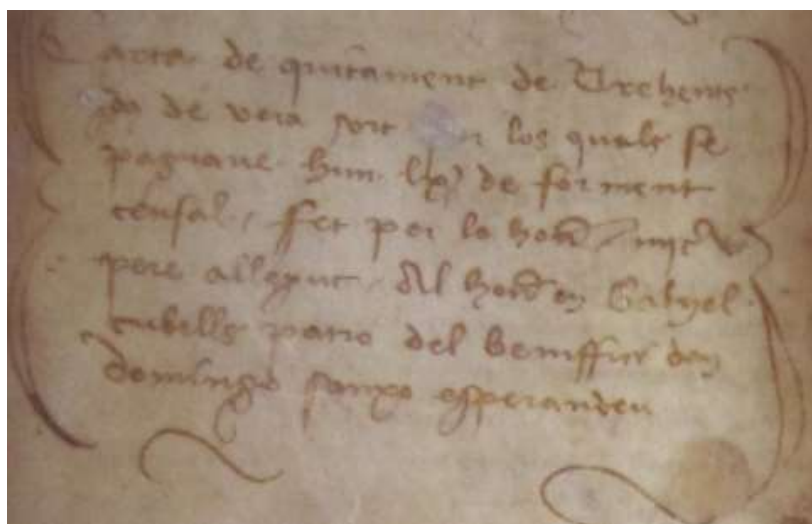 Carta de quitament de Trehents
ss de vera sort los quals se
paguaue hun de forment
censal fet per lo hon
pere al hon en Gabryel
cubells patro del beniffet den
domingo sanxo esperandeu